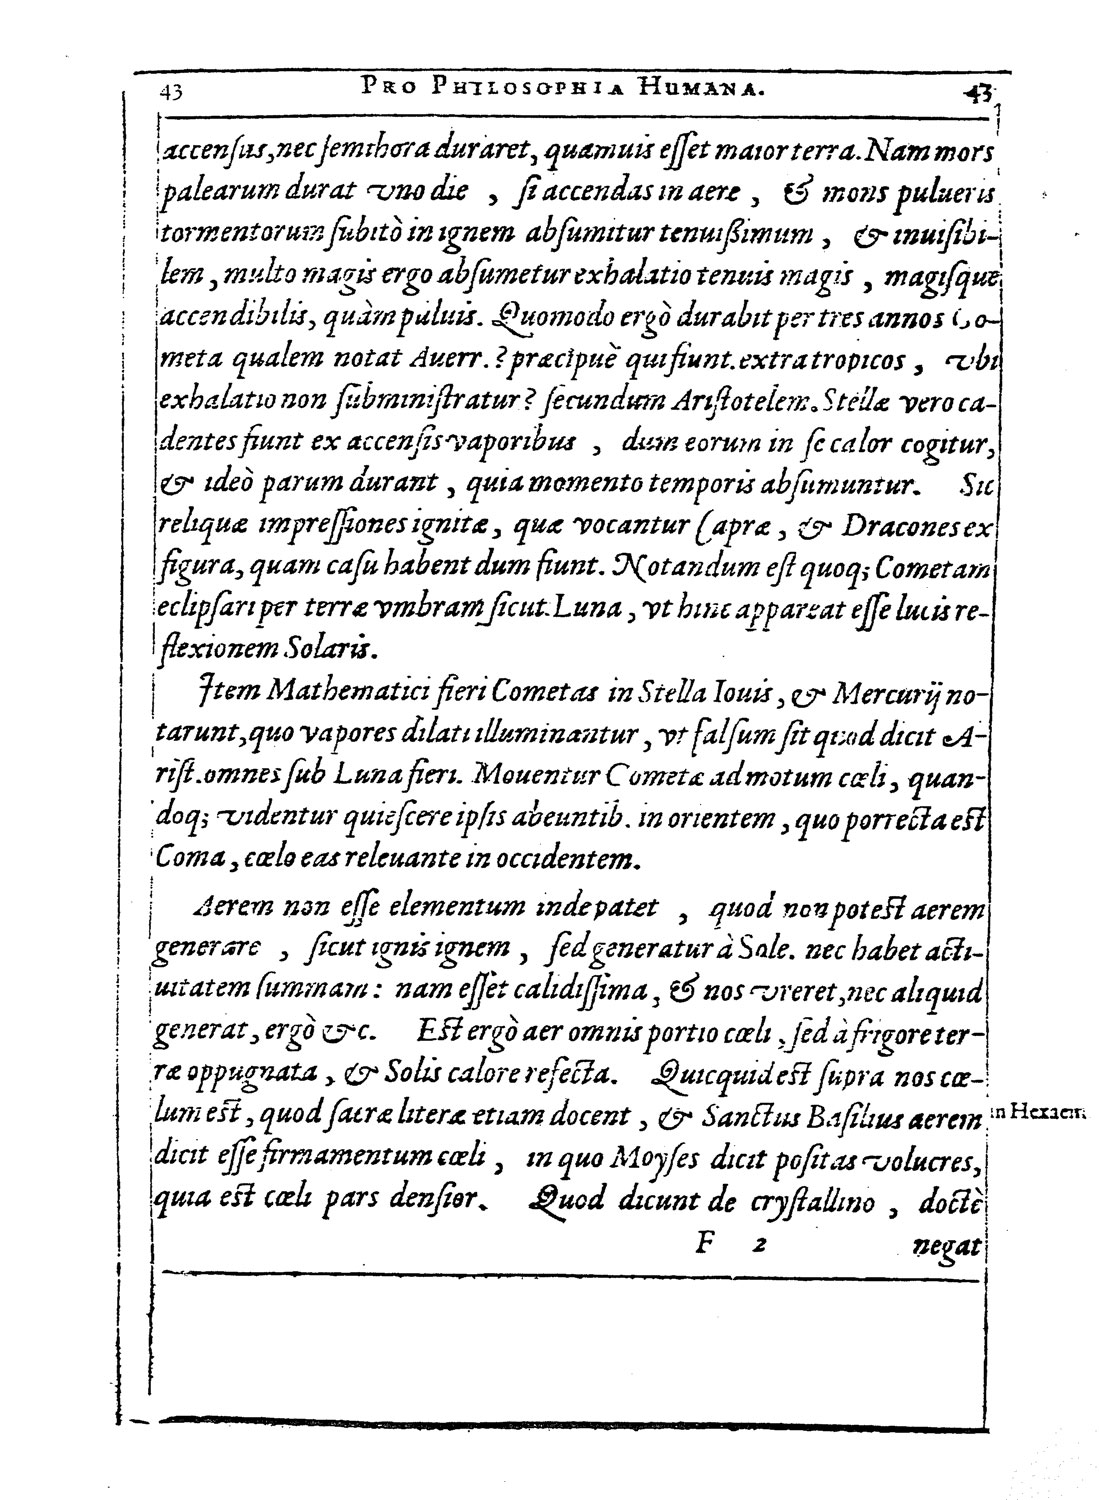 43 PRO PHILOSOPHIA HUMANA. 43
accenſus, nec ſemihora duraret, quamuis eſſet maior terra. Nam mors
palearum durat vno die , ſi accendas in aere , & mons pulueris
tormentorum ſubitò in ignem abſumitur tenuißimum , & inuiſibi-
lem , multo magis ergo abſumetur exhalatio tenuis magis , magiſque
accendibilis, quàm puluis. Quomodo ergò durabit per tres annos Co-
meta qualem notat Auerr. ? præcipuè qui fiunt. extra tropicos , vbi
exhalatio non ſubminiſtratur? ſecundum Ariſtotelem. Stellæ vero ca-
dentes fiunt ex accenſis vaporibus , dum eorum in ſe calor cogitur,
& ideò parum durant , quia momento temporis abſumuntur. Sic
reliquæ impreſſiones ignitæ, quæ vocantur Capræ , & Dracones ex
figura, quam caſu habent dum fiunt. Notandum eſt quoq; Cometam
eclipſari per terræ vmbram ſicut. Luna , vt hinc appareat eſſe lucis re-
flexionem Solaris.
Item Mathematici fieri Cometas in Stella Iouis , & Mercurij no-
tarunt, quo vapores dilati illuminantur , vt falſum ſit quod dicit A-
riſt. omnes ſub Luna fieri. Mouentur Cometæ ad motum cœli , quan-
doq; videntur quieſcere ipſis abeuntib. in orientem , quo porrecta eſt
Coma , cœlo eas releuante in occidentem.
Aerem non eſſe elementum inde patet , quod non poteſt aerem
generare , ſicut ignis ignem , ſed generatur à Sole. nec habet acti-
uitatem ſummam : nam eſſet calidiſſima , & nos vreret , nec aliquid
generat , ergò &c. Eſt ergò aer omnis portio cœli , ſed à frigore ter-
ræ oppugnata , & Solis calore refecta. Quicquid eſt ſupra nos cœ-
lum eſt , quod ſacræ literæ etiam docent , & Sanctus Baſilius aerem
in Hexaem
dicit eſſe firmamentum cœli , in quo Moyſes dicit poſitas volucres,
quia eſt cœli pars denſior. Quod dicunt de cryſtallino , doctè
F 2 negat